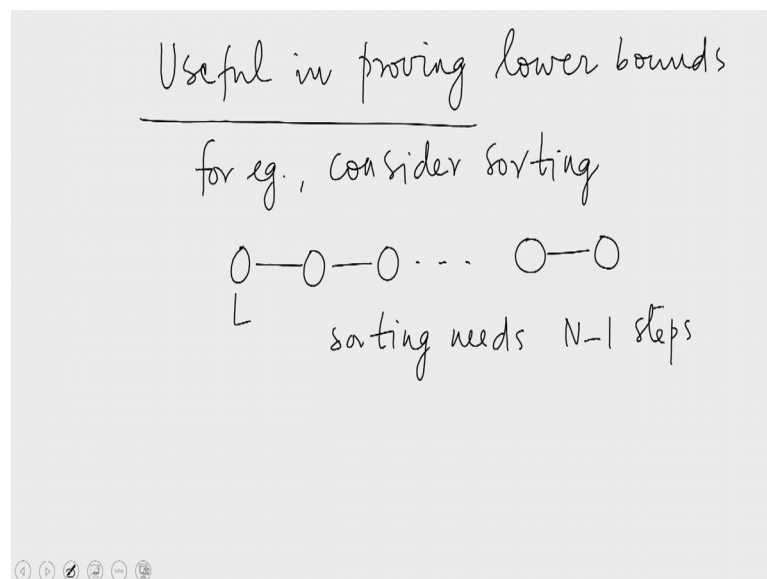 Useful in proving lower bounds
for eg., consider sorting
L
sorting needs N-1 steps